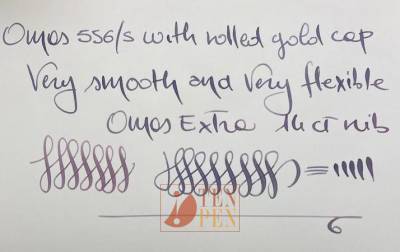 Omas 556/S with rolled gold cap
Very smooth and very flexible
Omas Extra 14 ct nib
TEN
PEN
6